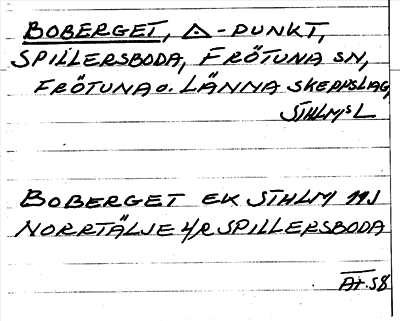 BOBERGET, △-PUNKT,
SPILLERSBODA, FRÖTUNA SN,
FRÖTUNA o. LÄNNA SKEPPSLAG,
STHLMS L
BOBERGET EK STHLM 11J
NORRTÄLJE 4/R SPILLERSBODA